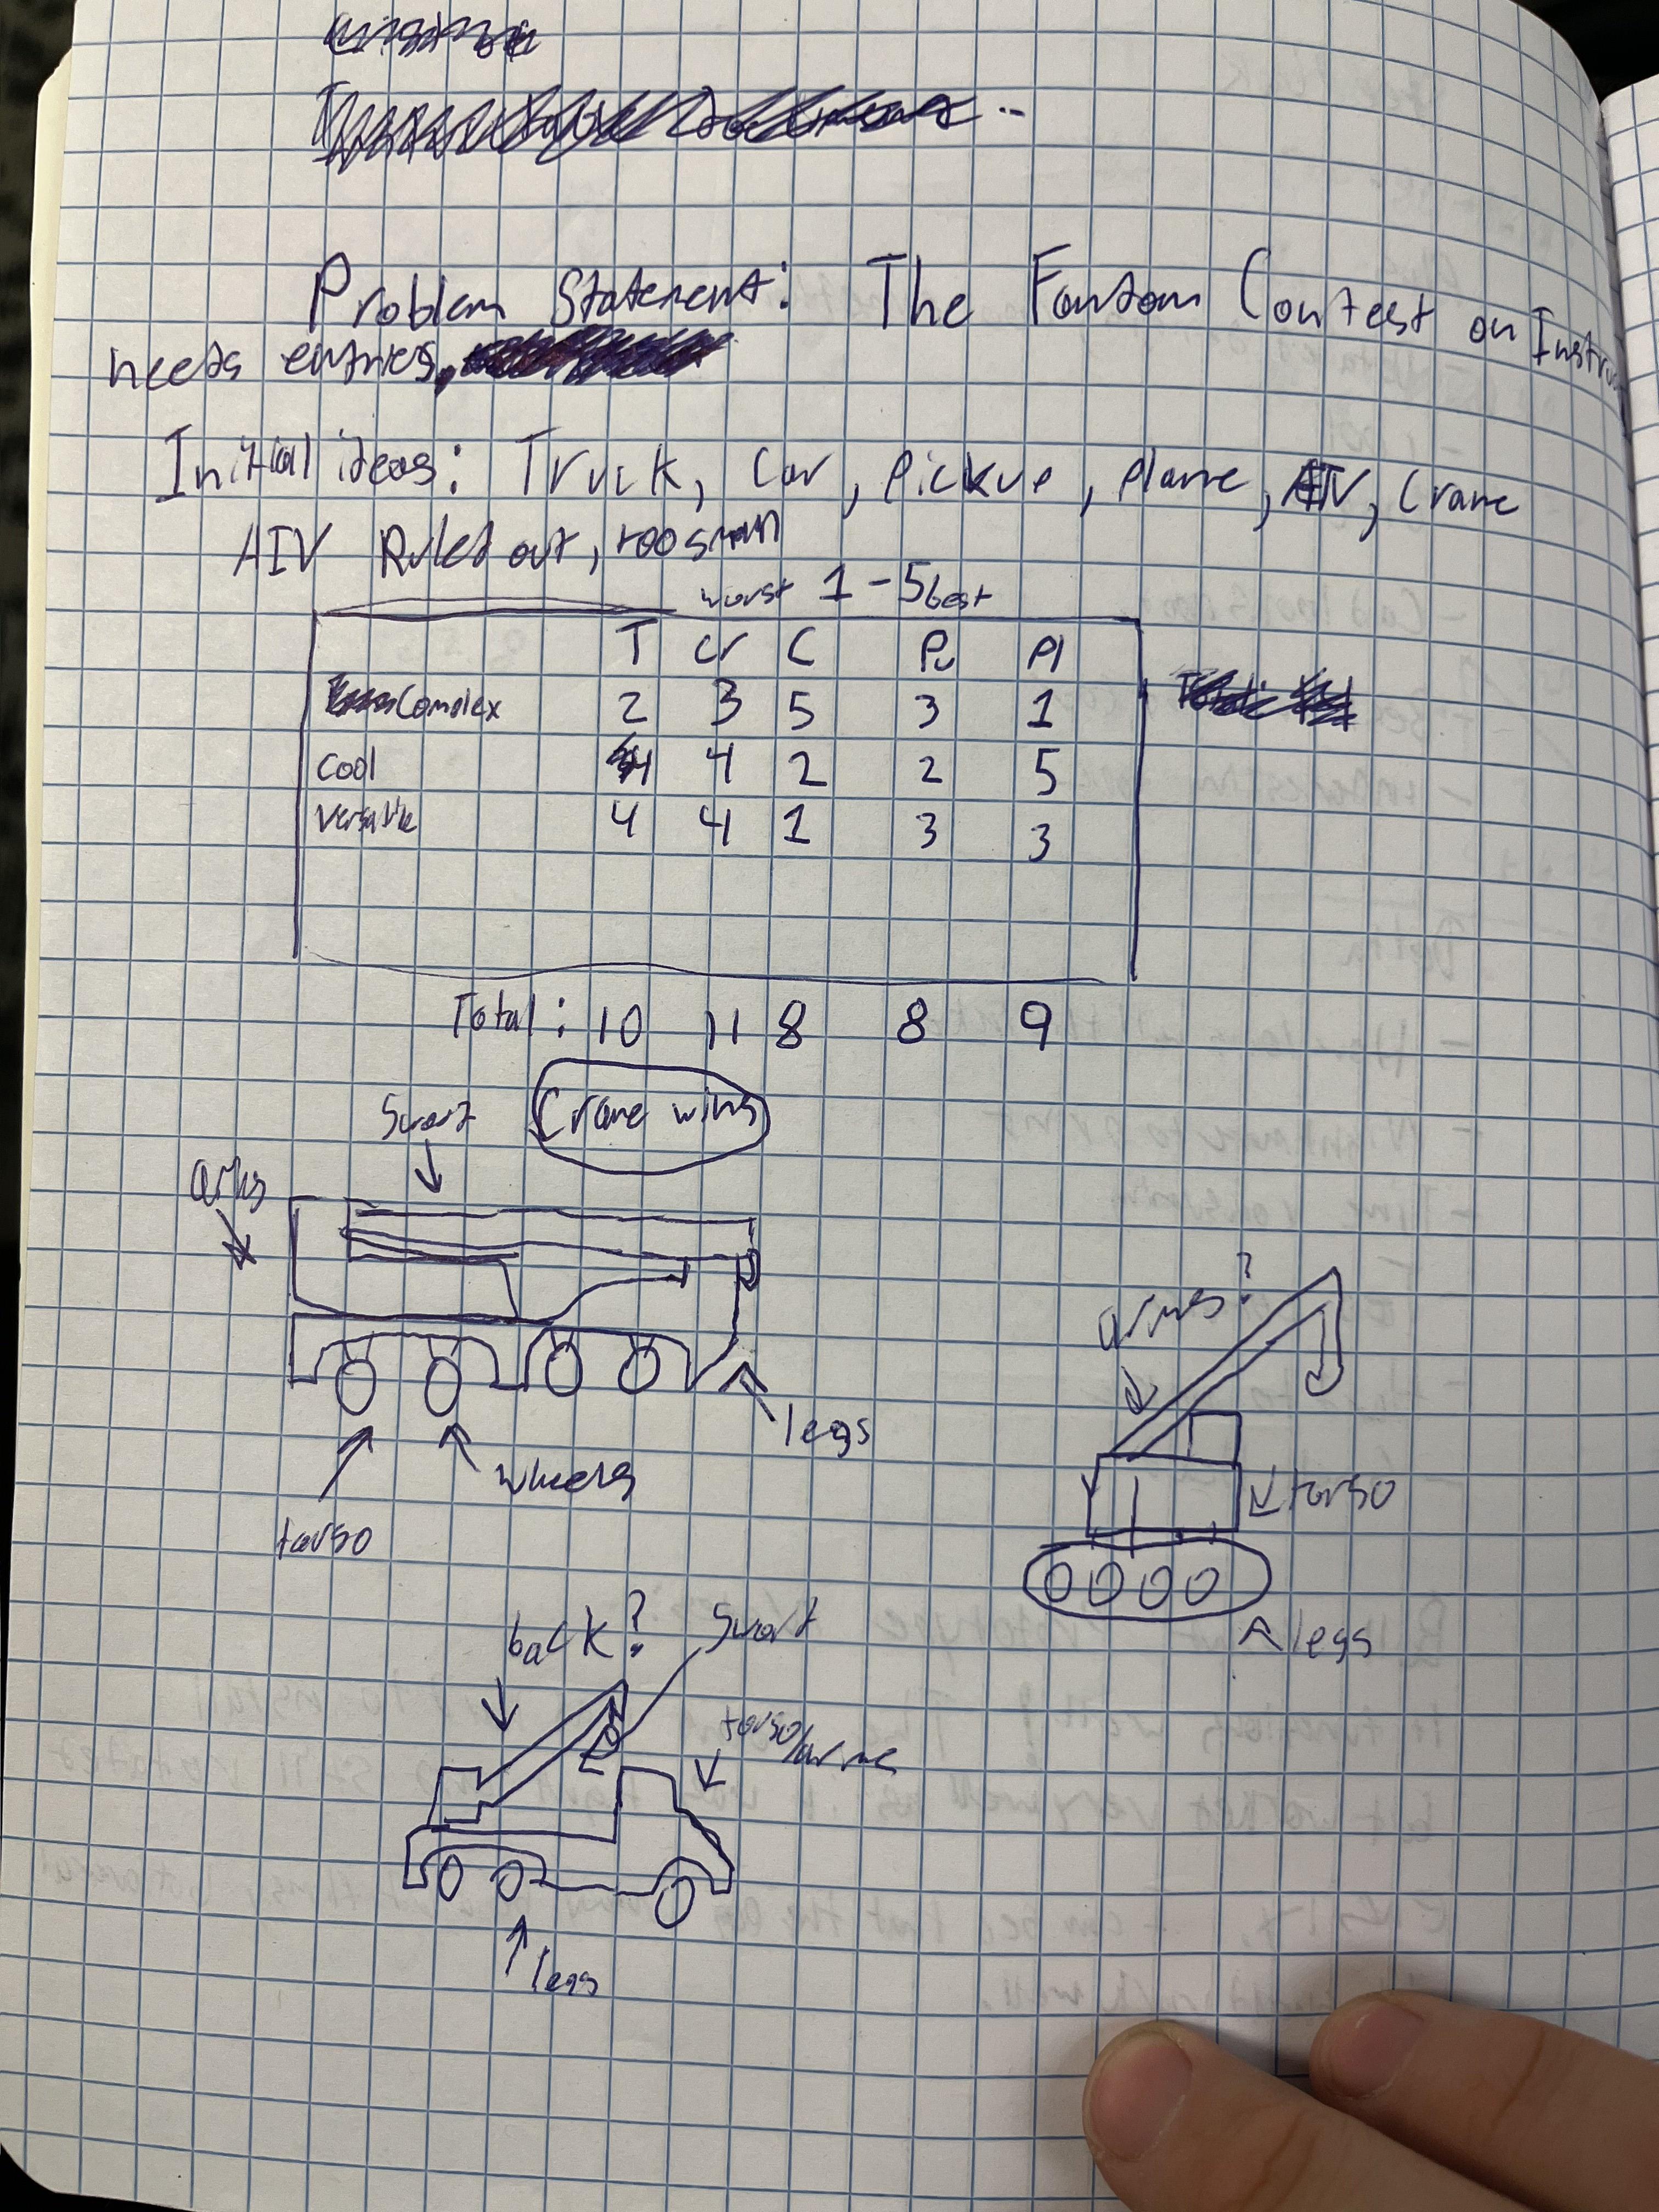 Problem Statement: The Fandom Contest on Instru
needs entries,
Initial ideas: Truck, Car, Pickup, Plane, ATV, Crane
ATV Ruled out, too small
worst 1-5 best
T Cr C Pu Pl
Complex 2 3 5 3 1
Cool 4 4 2 2 5
Versatile 4 4 1 3 3
Total: 10 11 8 8 9
Crane wins
Sword
arms
legs
wheels
torso
arms?
torso
legs
back?
Sword
torso/arms
legs